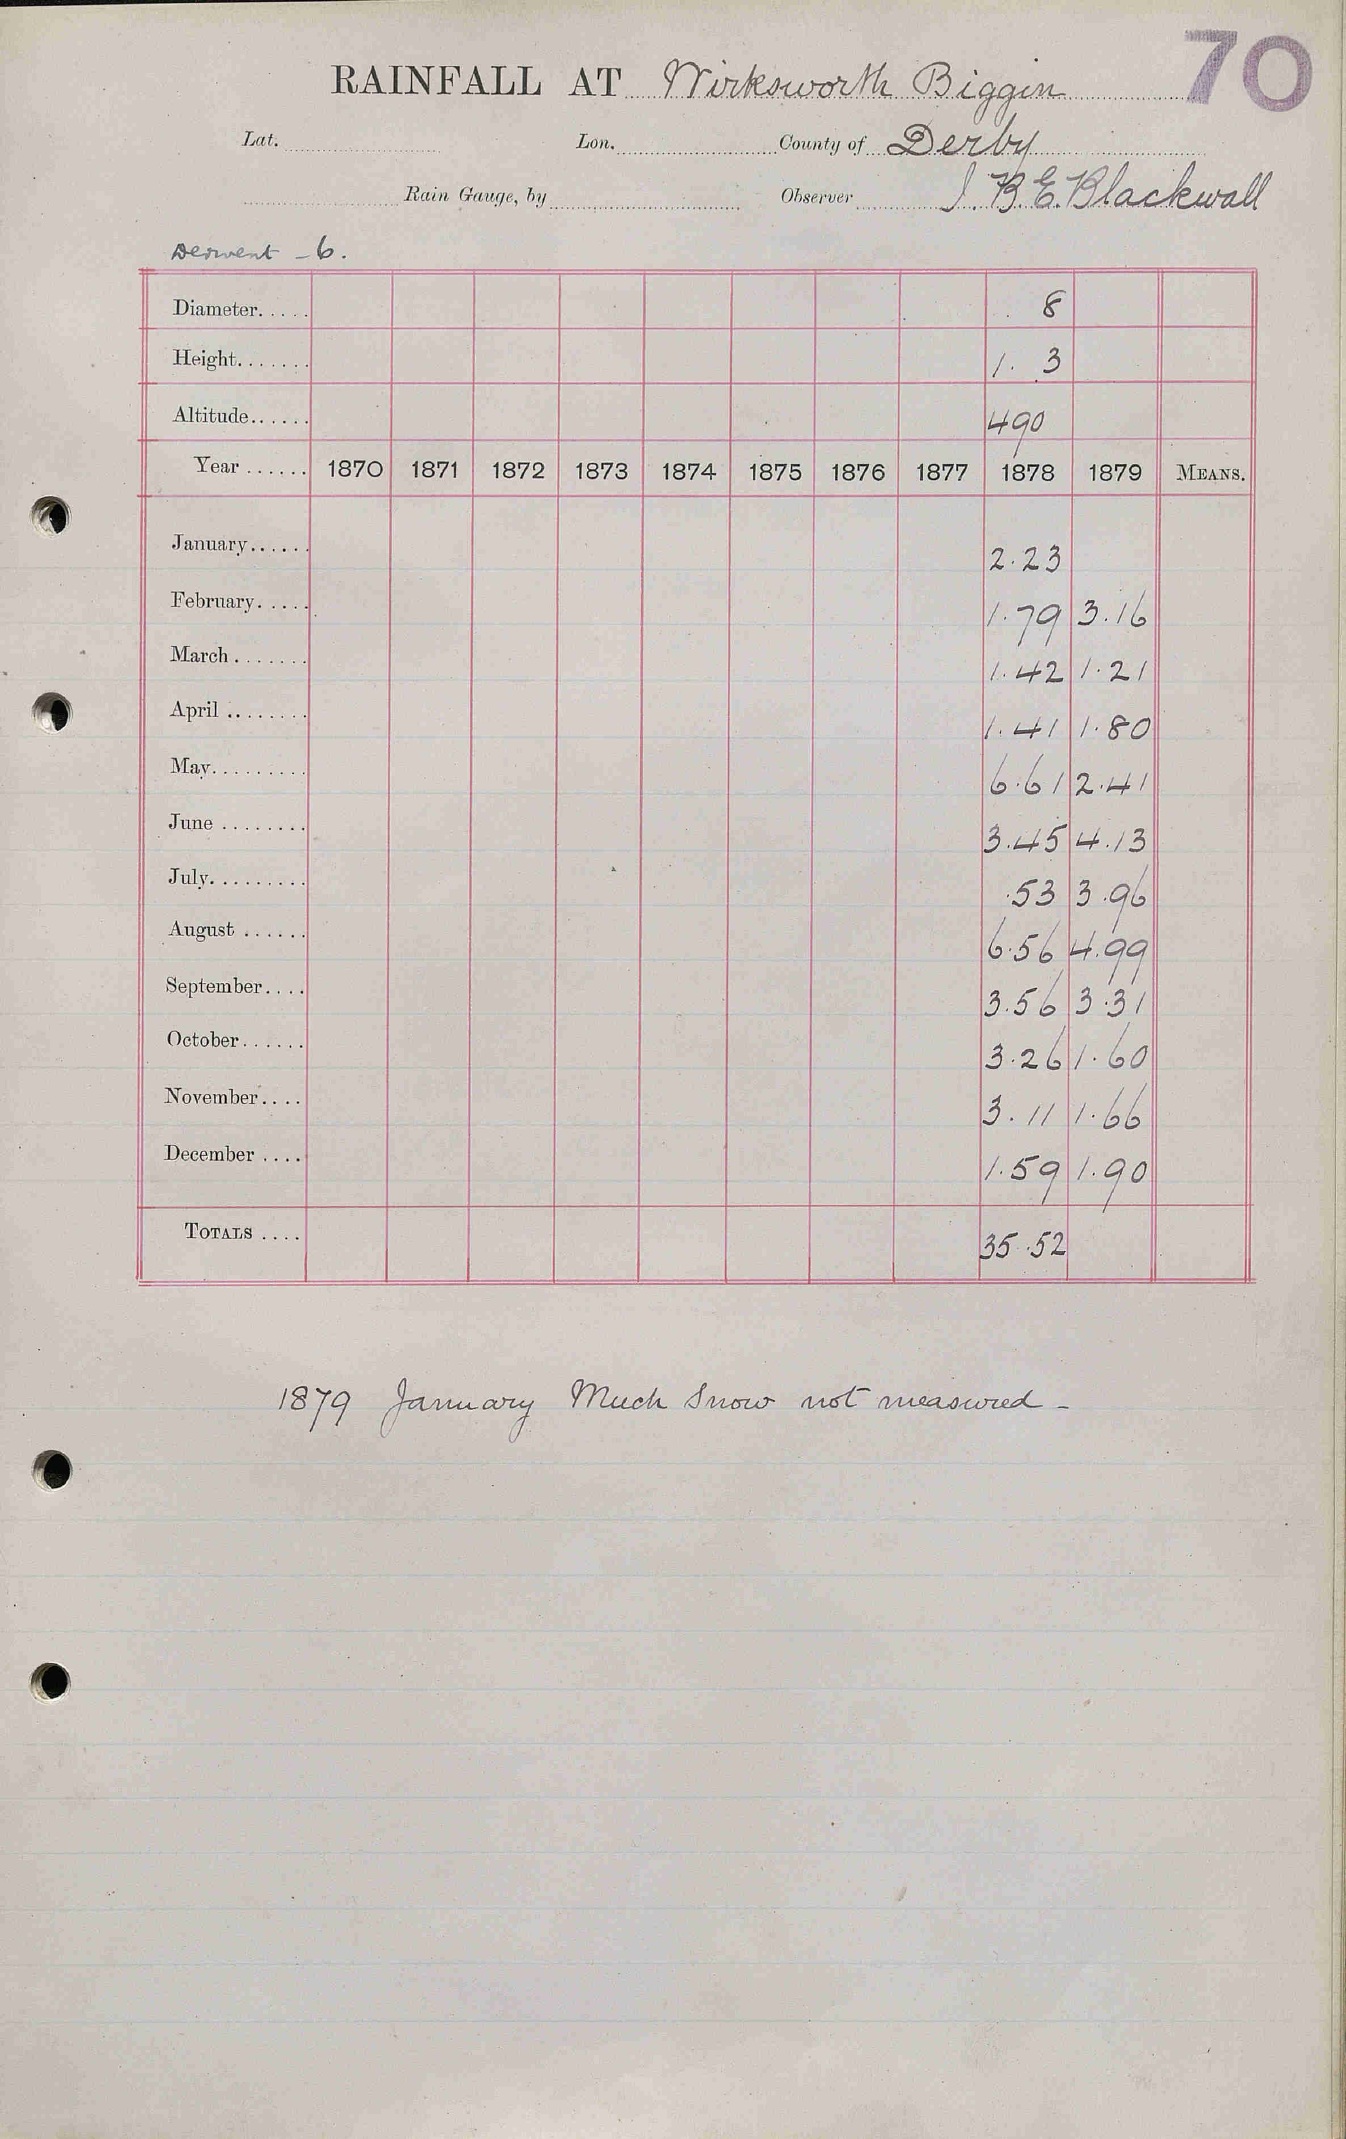 70
RAINFALL AT Wirksworth Biggin
Lat. Lon. County of Derby
Rain Gauge, by Observer J. B. E. Blackwall
Derwent - 6.
Diameter..... 8
Height....... 1. 3
Altitude...... 490
Year ...... 1870 1871 1872 1873 1874 1875 1876 1877 1878 1879 MEANS.
January...... 2.23
February..... 1.79 3.16
March ....... 1.42 1.21
April ........ 1.41 1.80
May......... 6.61 2.41
June ........ 3.45 4.13
July......... .53 3.96
August ...... 6.56 4.99
September.... 3.56 3.31
October...... 3.26 1.60
November.... 3.11 1.66
December .... 1.59 1.90
TOTALS .... 35.52
1879 January Much Snow not measured -